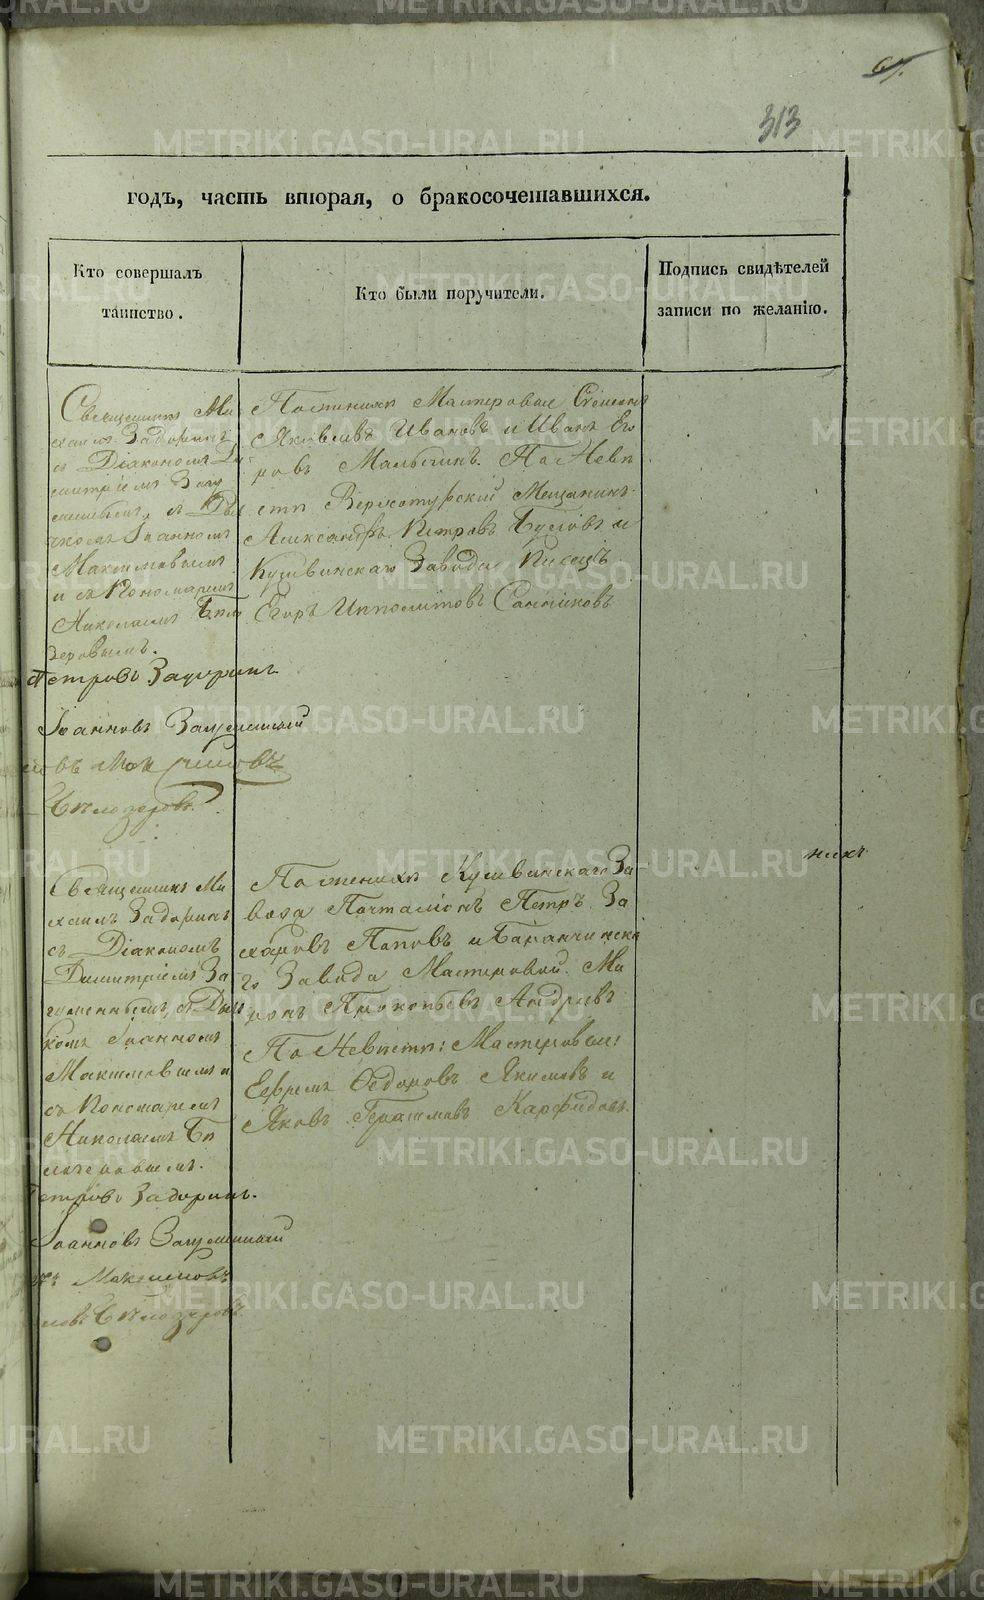 313
годъ, часть вторая, о бракосочетавшихся.
Кто совершалъ
таинство.
Кто были поручители.
Подпись свидѣтелей
записи по желанію.
Священникъ Ми
хаилъ Задоринъ
съ Діакономъ Ди
митріемъ
съ Дья
чкомъ Іоанномъ
Максимовымъ
и съ Пономаремъ
Николаемъ Бѣло
зеровымъ.
Петровъ Задоринъ
Іоанновъ
Максимовъ
Бѣлозеровъ
По женихѣ Мастеровые Степанъ
Яковлевъ Ивановъ и Иванъ Его
ровъ Малыгинъ. По Невѣ
стѣ Верхотурскій Мещанинъ
Александръ Петровъ и
Кушвинскаго Завода Писецъ
Егоръ Ипполитовъ Санниковъ
Священникъ Ми
хаилъ Задоринъ
съ Діакономъ
Димитріемъ За
съ Дьяч
комъ Іоанномъ
Максимовымъ и
съ Пономаремъ
Николаемъ Бѣ
лозеровымъ.
Петровъ Задоринъ.
Іоанновъ
Максимовъ
Бѣлозеровъ
По женихѣ Кушвинскаго За-
вода Почталіонъ Петръ За
харовъ Поповъ и Баранчинска
го Завода Мастеровой Ми
ронъ Прокопьевъ
По Невѣстѣ: Мастеровые:
Ефремъ Ѳедоровъ Якимовъ и
Яковъ Герасимовъ Карфидовъ.
никъ
METRIKI.GASO-URAL.RU